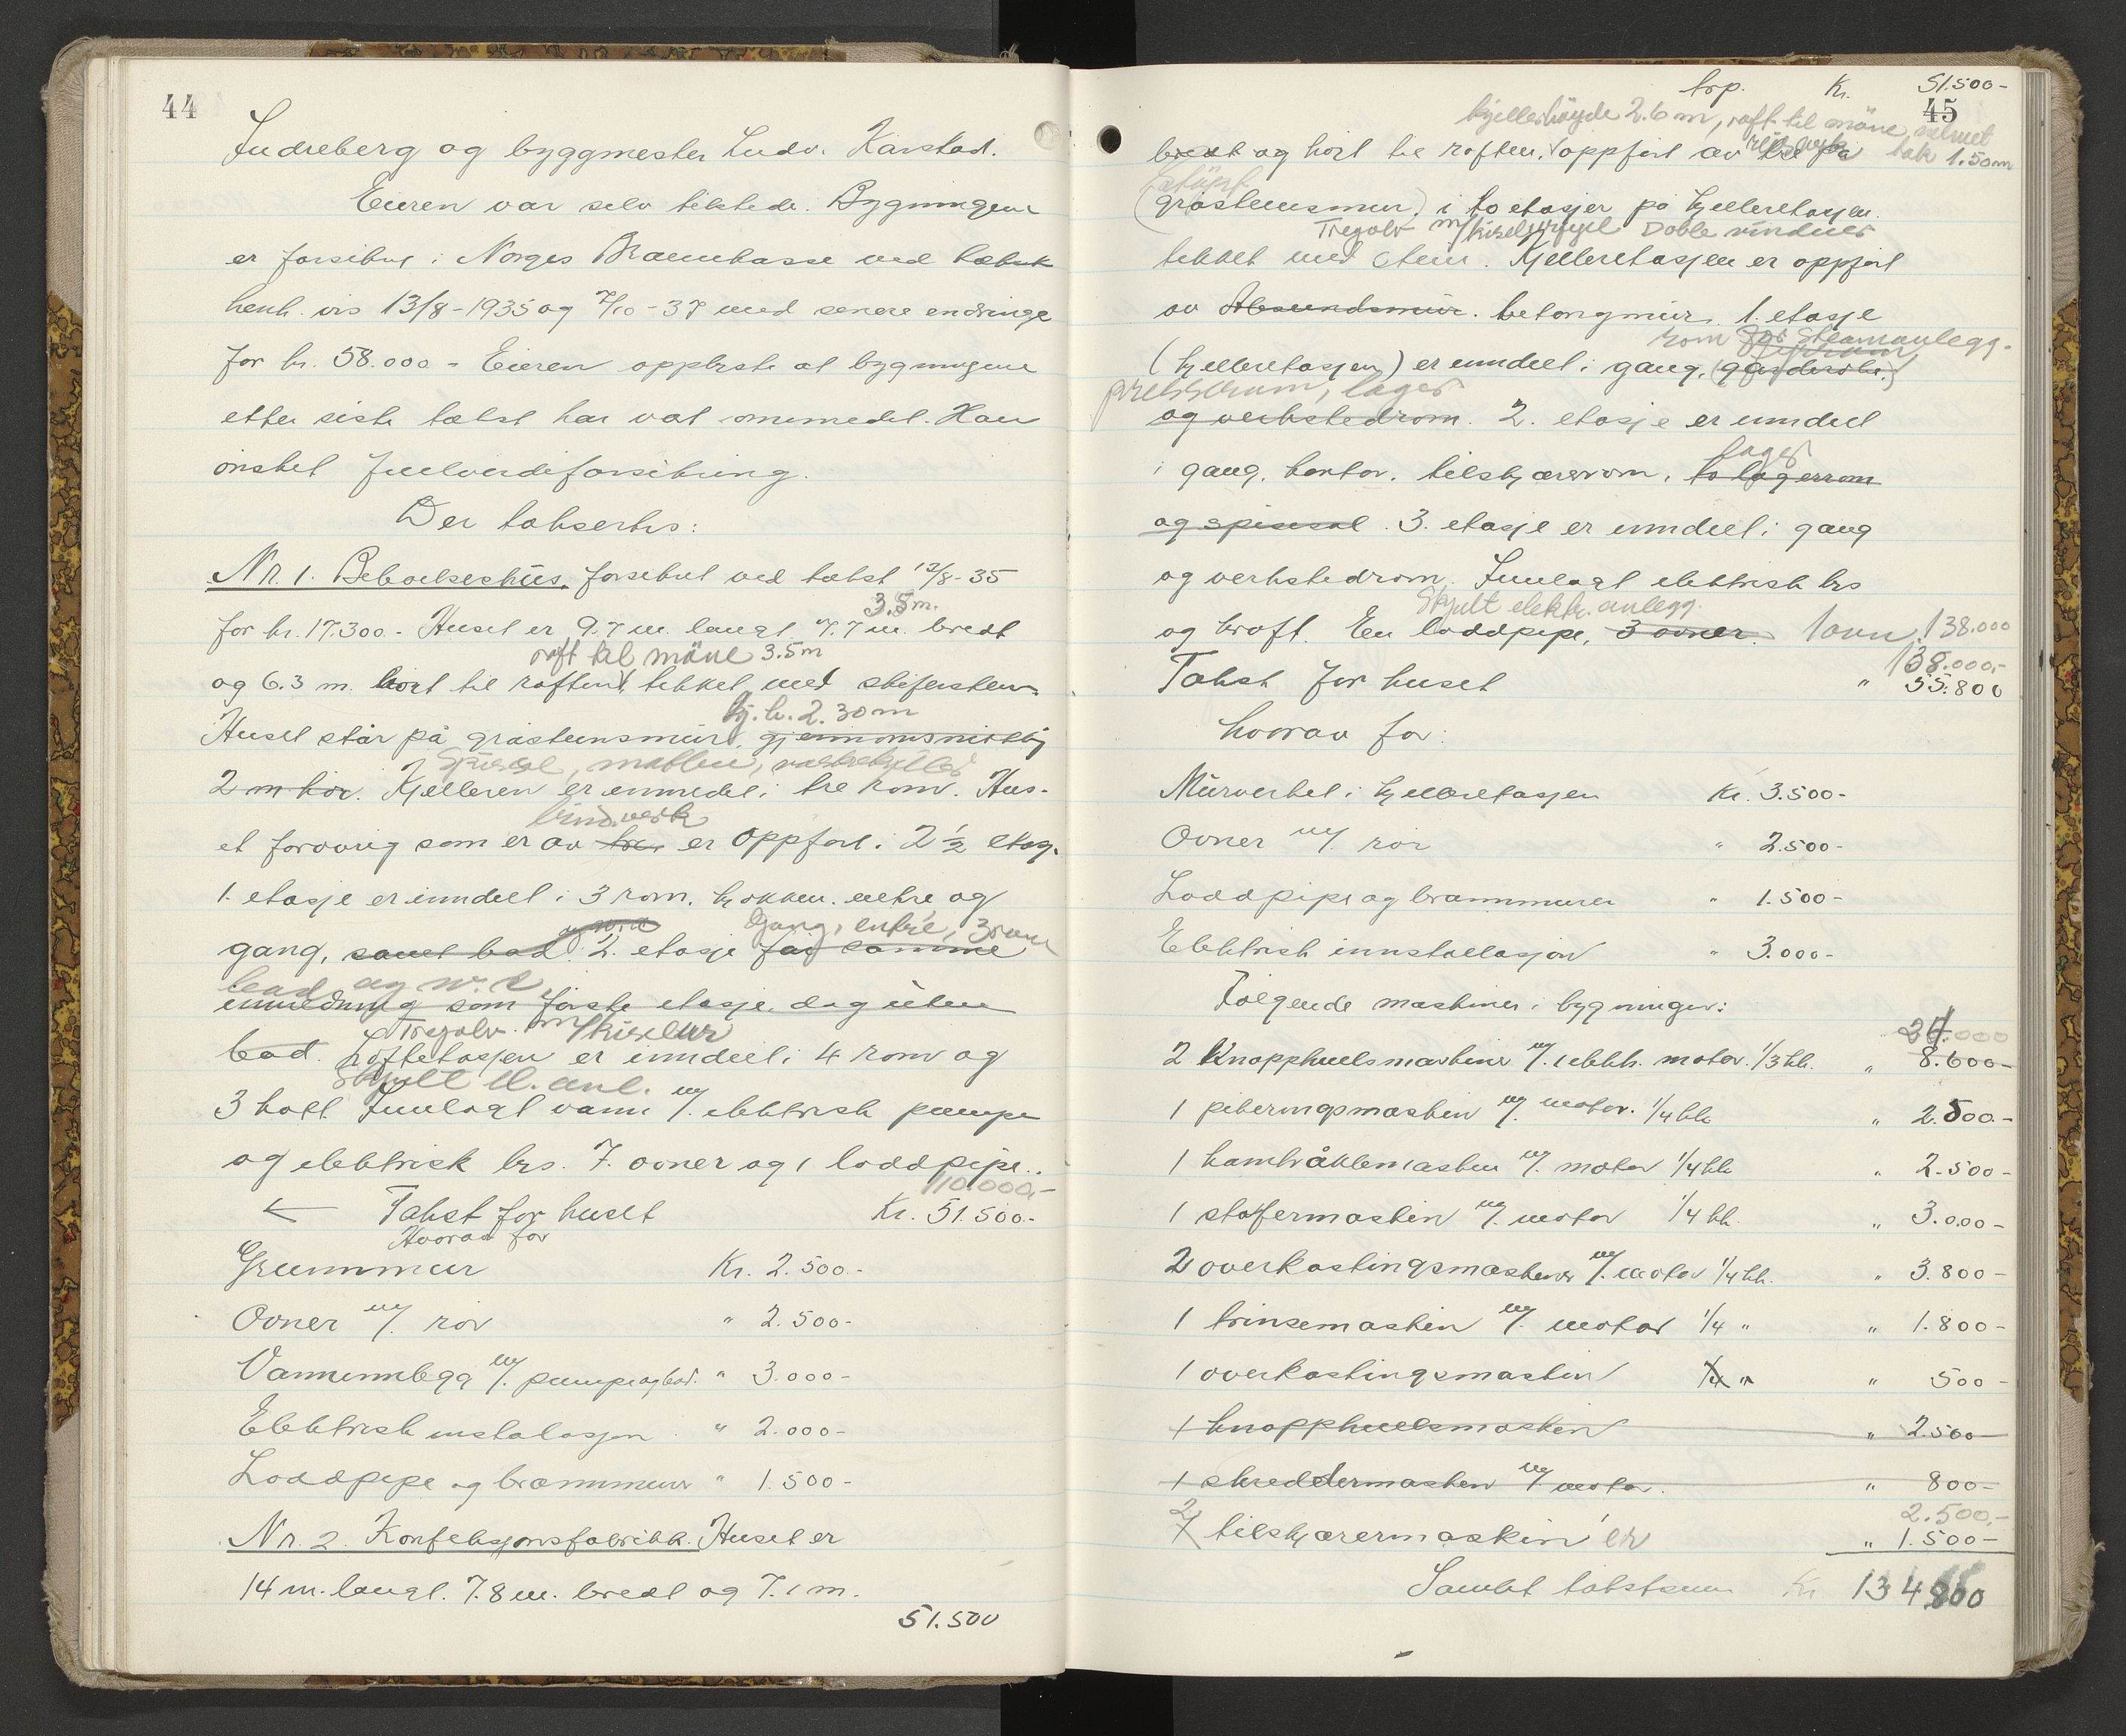 44
Indreberg og byggmester Ludv. Karstad.
Eieren var selv tilstede. Bygningene
er forsikret i Norges Brannkasse ved takst
henh. vis 13/8-1935 og 7/10-37 med senere endringe
for kr. 58.000.- Eieren opplyste at bygningene
etter siste takst har vært ominnredet. Han
ønsket fullverdiforsikring.
Der taksertes:
Nr. 1. Beboelseshus, forsikret ved takst 13/8-35
3.5 m.
for kr. 17.300.- Huset er 9.7 m. langt 7.7 m. bredt
raft til möne 3.5 m
og 6.3 m. høit til raften, tekket med skifersten.
Kj. h. 2.30 m
Huset står på gråstensmur, gjennomsnittlig
Spisesal, matbu, vaskekjeller
2 m høi. Kjelleren er innredet i tre rom. Hus-
bindverk
et forøvrig som er av tre er oppført i 2 1/2 etag.
1. etasje er inndelt i 3 rom, kjøkken, entre og
og w.c. Gang, entré, 3 rom
gang, samt bad. 2. etasje har samme
bad og w.c.
innredning som første etasje, dog uten
Tregolv m/kiselur
bad. Loftetasjen er inndelt i 4 rom og
Skjult el. anl.
3 kott. Innlagt vann m/. elektrisk pumpe
og elektrisk lys. 7. ovner og 1 loddpipe.
110.000,-
← Takst for huset Kr. 51.500.-
Hvorav for
Grunnmur Kr. 2.500.-
Ovner m/. rør " 2.500-
Vanninnlegg m/. pumpe og bad. " 3.000-
Elektrisk instalasjon " 2.000-
Loddpipe og brannmurer " 1.500-
Nr. 2. Konfeksjonsfabrikk. Huset er
14 m. langt. 7.8 m. bredt og 7.1 m.
51.500
trp. Kr. 51.500-
45
kjellerhöyde 2.6 m, raft til möne, valmet
tak 1.50 m
bredt og høit til raften, oppført av tre på
støpt
(gråstensmur) i to etasjer på kjelleretasjen.
Tregolv m/kiselurfyll Doble vinduer
tekket med sten. Kjelleretasjen er oppført
av Alesundsmur. betongmur. 1. etasje
rom for Steamanlegg.
(kjelleretasjen) er inndelt i gang, (garderobe)
presserum, lager
og verkstedrom. 2. etasje er inndelt
lager
i gang, kontor, tilskjærerrom, to lagerrom
og spisesal. 3. etasje er inndelt i gang
og verkstedrom. Innlagt elektrisk lys
Skjult elektr. anlegg.
og kraft. En loddpipe, 3 ovner. 1 ovn 138.000
138.000,-
Takst for huset " 55.800
hvorav for:
Murverket i kjelleretasjen Kr. 3.500-
Ovner m/. rør " 2.500-
Loddpipe og brannmurer " 1.500-
Elektrisk innstallasjon " 3.000-
Følgende maskiner i bygningen:
.000
2 Knapphullsmaskiner m/. elektr. motor. 1/3 hk. " 8.600-
1 pikeringsmaskin m/. motor. 1/4 hk " 2.500.-
1 kantråklemaskin m/. motor 1/4 hk " 2.500-
1 staffermaskin m/. motor 1/4 hk. " 3.000-
2 overkastingsmaskiner m/. motor 1/4 hk. " 3.800-
1 trinsemaskin m/. motor 1/4 " " 1.800-
1 overkastingsmaskin 1/4 " " 500-
1 knapphullsmaskin " 2.500
1 skreddermaskin m/. motor. " 800-
2 2.500,-
1 tilskjærermaskin er " 1.500-
Samlet takstsum Kr 134800